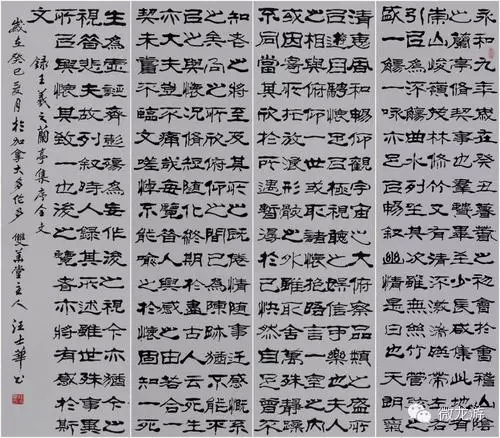 永和九年歲在癸丑暮春之初會於會稽山陰
之蘭亭脩禊事也羣賢畢至少長咸集此地有
崇山峻嶺茂林脩竹又有清流激湍映帶左右
引以為流觴曲水列坐其次雖無絲竹管弦之
盛一觴一詠亦足以暢叙幽情是日也天朗氣
清惠風和暢仰觀宇宙之大俯察品類之盛所
以遊目騁懷足以極視聽之娛信可樂也夫人
之相與俯仰一世或取諸懷抱悟言一室之內
或因寄所託放浪形骸之外雖取舍萬殊靜躁
不同當其欣於所遇暫得於己快然自足不
知老之將至及其所之既倦情隨事遷感慨係
之矣向之所欣俛仰之間已為陳跡猶不能不
以之興懷況脩短隨化終期於盡古人云死生
亦大矣豈不痛哉每覽昔人興感之由若合一
契未嘗不臨文嗟悼不能喻之於懷固知一死
生為虛誕齊彭殤為妄作後之視今亦猶今之
視昔悲夫故列叙時人錄其所述雖世殊事異
所以興懷其致一也後之覽者亦將有感於斯
文
錄王羲之蘭亭集序全文
歲在癸巳夏月於加拿大多倫多 堂主人 汪士華書
微龙游